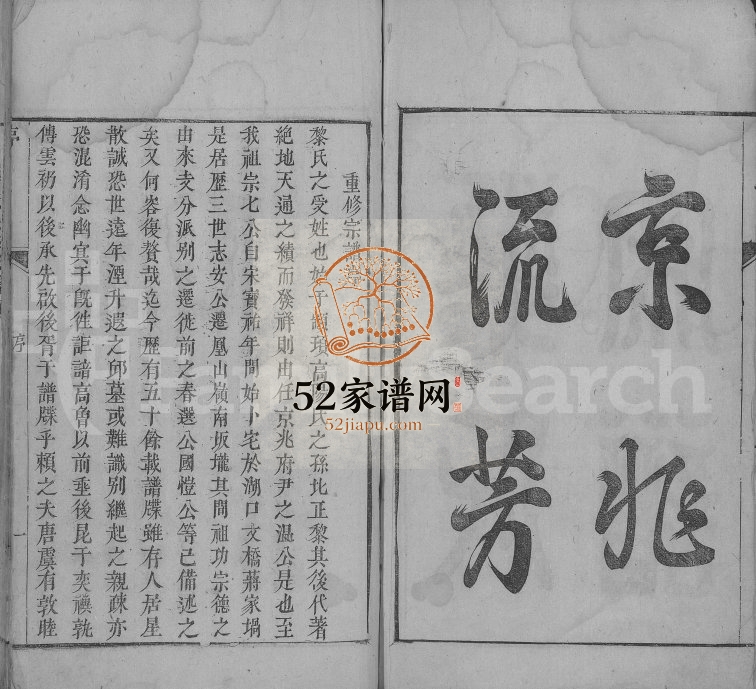 京兆
流芳
重修宗譜
黎氏之受姓也始于顓頊高陽氏之孫北正黎其後代著
絕地天通之績而發祥則由任京兆府尹之溫公是也至
我祖宗七公自宋寶祐年間始卜宅於湖口文橋蔣家塌
是居歷三世志安公遷凰山嶺南坂壠其間祖功宗德之
由來支分派別之遷徙前之春選公國愷公等已備述之
矣又何容復贅哉迄今歷有五十餘載譜牒雖存人居星
散誠恐世遠年湮升遐之邱墓或難識別繼起之親疎亦
恐混淆念幽宜于既徃詎諳高魯以前垂後昆于奕禩孰
傳雲礽以後承先啟後胥于譜牒乎賴之夫唐虞有敦睦
序
一
52家谱网
52jiapu.com
Search